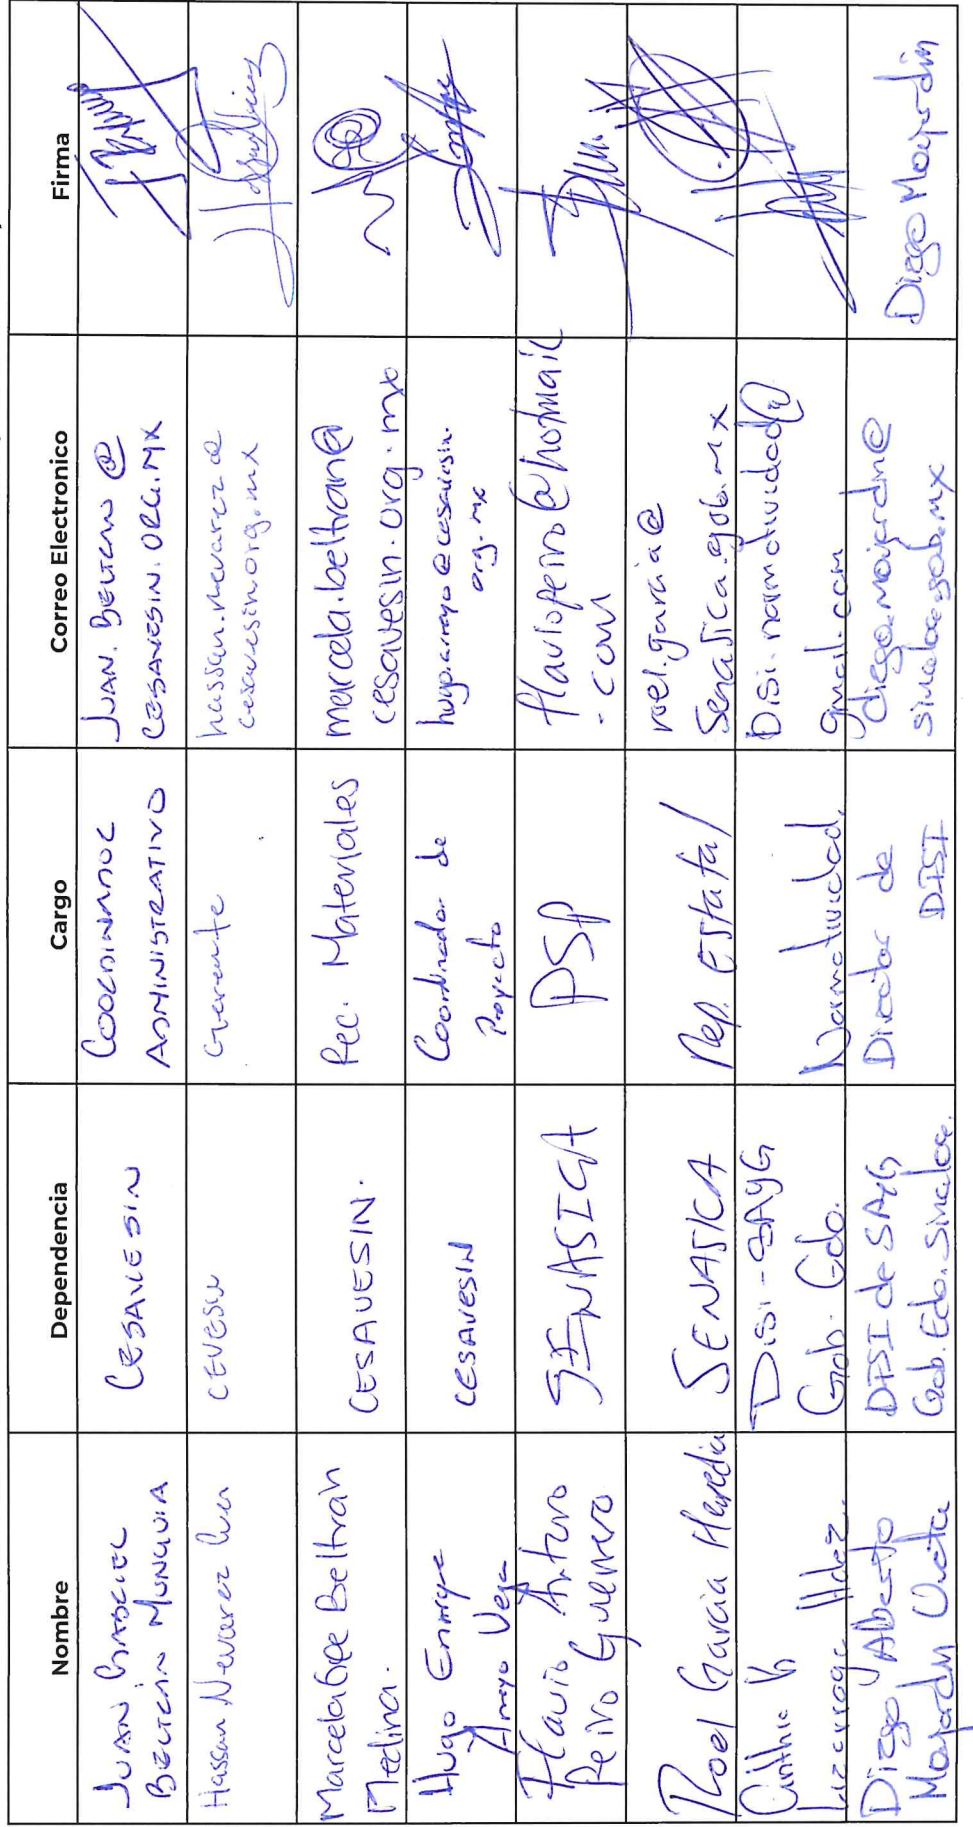 Nombre Dependencia Cargo Correo Electronico Firma
JUAN GABRIEL
BELTRÁN MUNGUIA
CESAVESIN
COORDINADOR
ADMINISTRATIVO
JUAN. BELTRAN @
CESAVESIN. ORG. MX
Hassan Nevarez
Gerente
hassan.nevarez@
cesavesin.org.mx
Marcela Gpe Beltrán
Medina.
CESAVESIN.
Rec. Materiales
marcela.beltran@
cesavesin.org.mx
Hugo Enrique
Arroyo Vega
CESAVESIN
Coordinador de
Proyecto
hugo.arroyo@cesavesin.
org.mx
Flavio Arturo
Peiro Guerrero
SENASICA
PSP
flaviopeiro@hotmail
.com
Roel Garcia Heredia
SENASICA
Rep. Estatal
roel.garcia@
Senasica.gob.mx
Cinthia
Lizarraga Hdez.
DISI-SAyG
Gob. Edo.
Normatividad.
Disi.normatividad@
gmail.com
Diego Alberto
Mayordin
DISI de SAyG
Gob. Edo. Sinaloa.
Director de
DISI
diego.mojardin@
sinaloa.gob.mx
Diego Moyardin